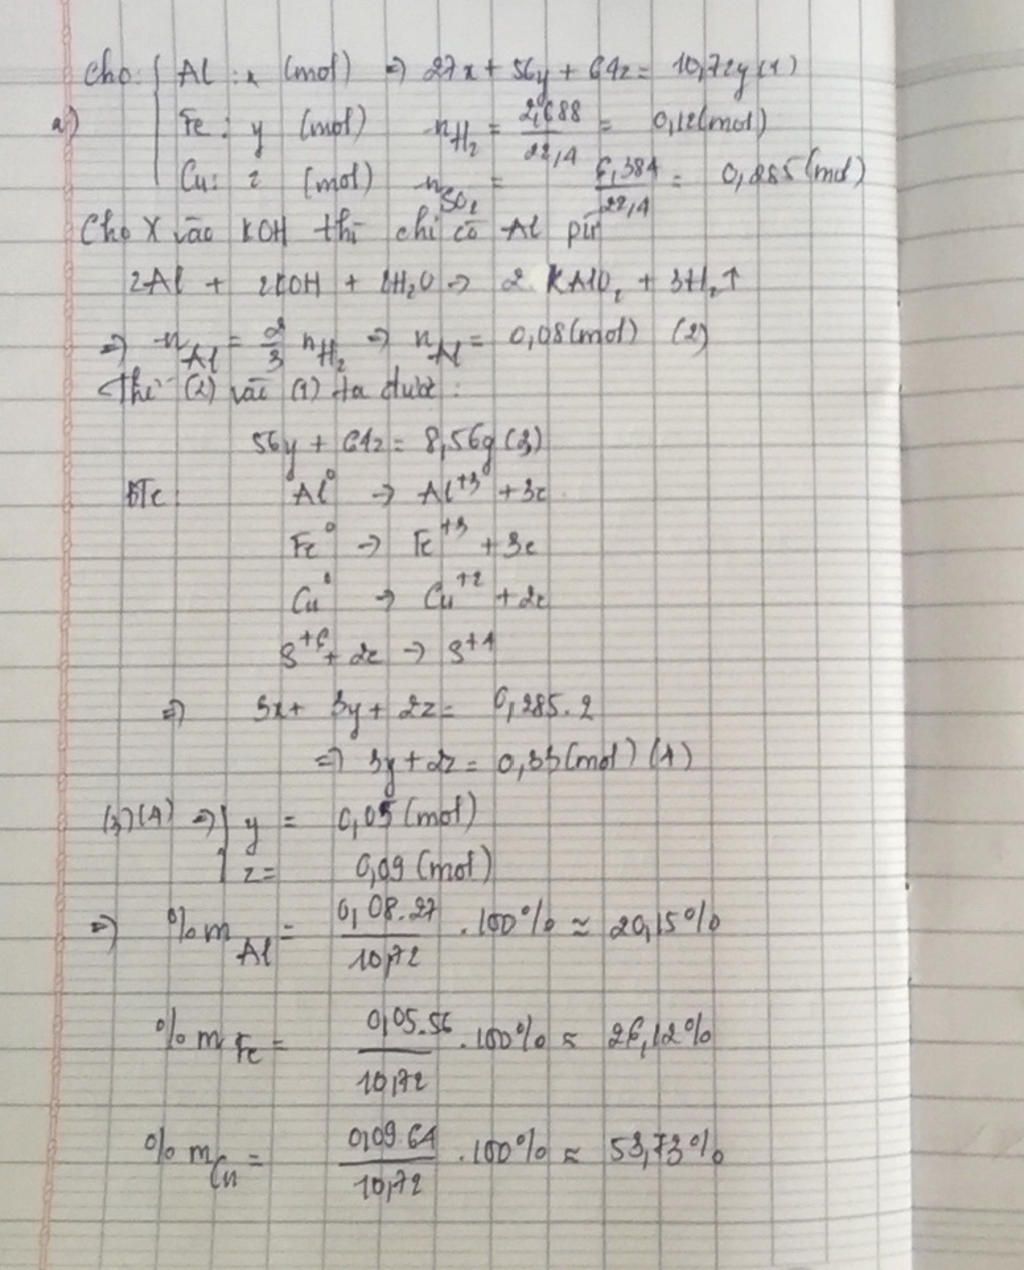 Cho: { Al : x (mol) => 27x + 56y + 64z = 10,72g (1)
a) Fe : y (mol) nH₂ = 2,688/22,4 = 0,12 (mol)
Cu : z (mol) nSO₂ = 6,384/22,4 = 0,285 (mol)
Cho X vào KOH thì chỉ có Al pứ
2Al + 2KOH + 2H₂O → 2KAlO₂ + 3H₂↑
=> nAl = 2/3 nH₂ => nAl = 0,08 (mol) (2)
Thế (2) vào (1) ta được :
56y + 64z = 8,56g (3)
BTe: Al⁰ → Al⁺³ + 3e
Fe⁰ → Fe⁺³ + 3e
Cu⁰ → Cu⁺² + 2e
S⁺⁶ + 2e → S⁺⁴
=> 3x + 3y + 2z = 0,285.2
=> 3y + 2z = 0,33 (mol) (4)
(3)(4) => { y = 0,05 (mol)
z = 0,09 (mol)
=> %mAl = 0,08.27/10,72 . 100% ≈ 20,15%
%mFe = 0,05.56/10,72 . 100% ≈ 26,12%
%mCu = 0,09.64/10,72 . 100% ≈ 53,73%